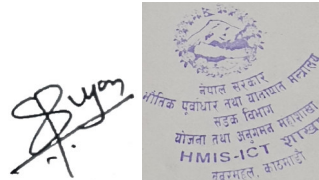 नेपाल सरकार
भौतिक पूर्वाधार तथा यातायात मन्त्रालय
सडक विभाग
योजना तथा अनुगमन महाशाखा
HMIS-ICT शाखा
काठमाडौं